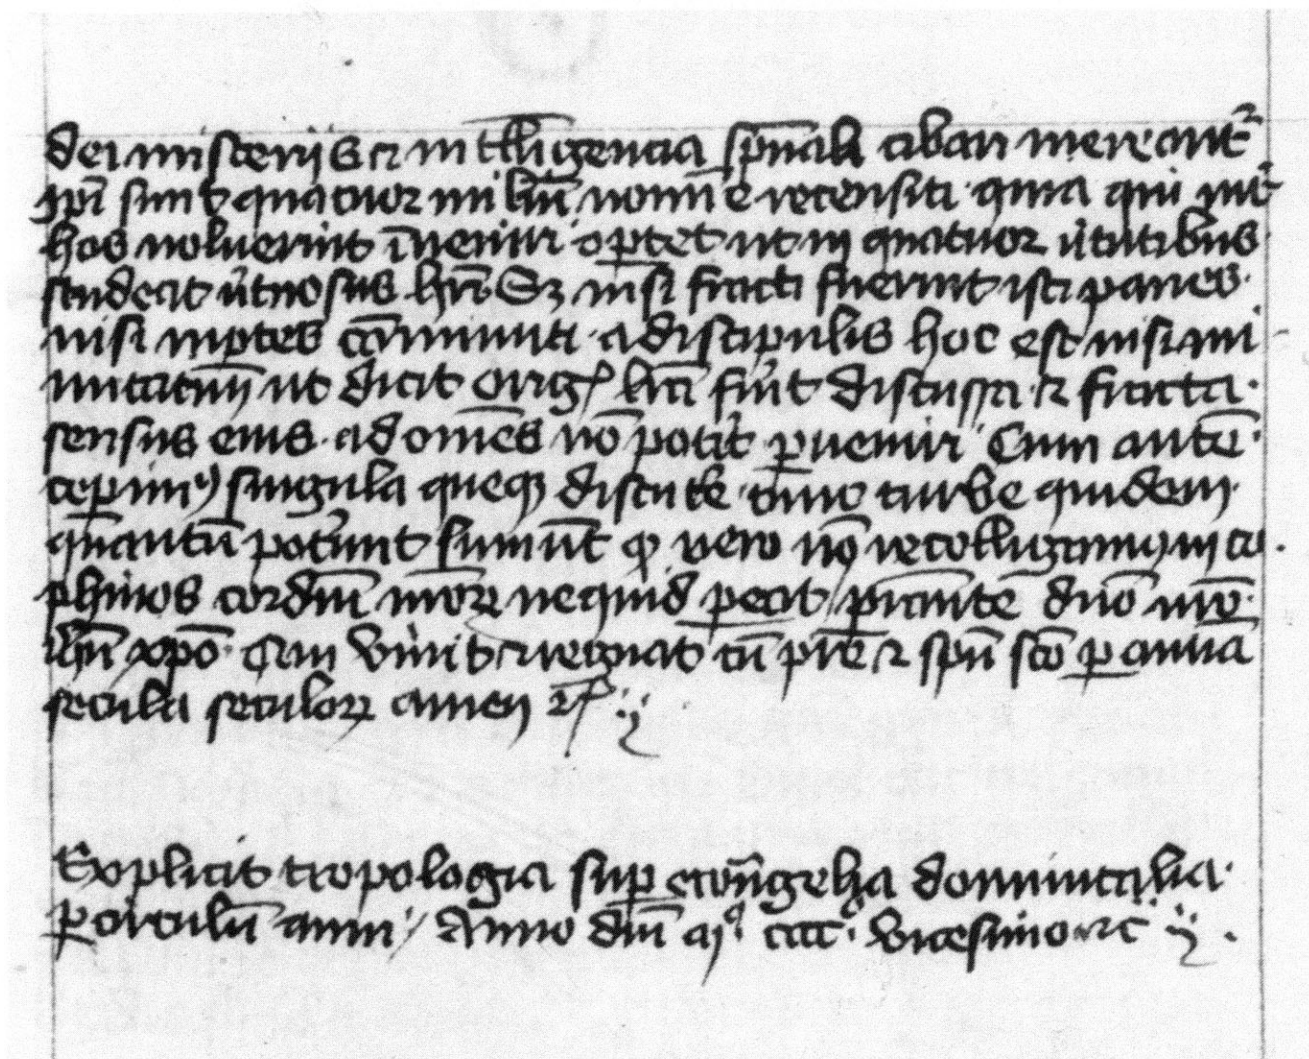 dei misterijs et intelligencia spirituali cibari merentur
ipsi sunt quatuor milium nomine recensiti. quia qui inter
hos voluerint inveniri oportet ut in quatuor virtutibus
studeant virtuosus haberi. Sed nisi fracti fuerint isti panes.
nisi in partes comminuti. a discipulis hoc est nisi mi
nutatim ut dicit Orig littera fuerit discussa et fracta.
sensus eius. ad omnes non poterit pervenire Cum autem
ceperimus singula queque discutere. tunc turbe quidem
quantum poterunt sument que vero non recolligamus in co
phinos cordium nostrorum nequid pereat / prestante domino nostro
ihesu christo. Qui vivit et regnat cum patre et spiritu sancto per omnia
secula seculorum amen etc
Explicit tropologia super ewangelia dominicalia.
per circulum anni / Anno domini mº. cccº. vicesimo etc